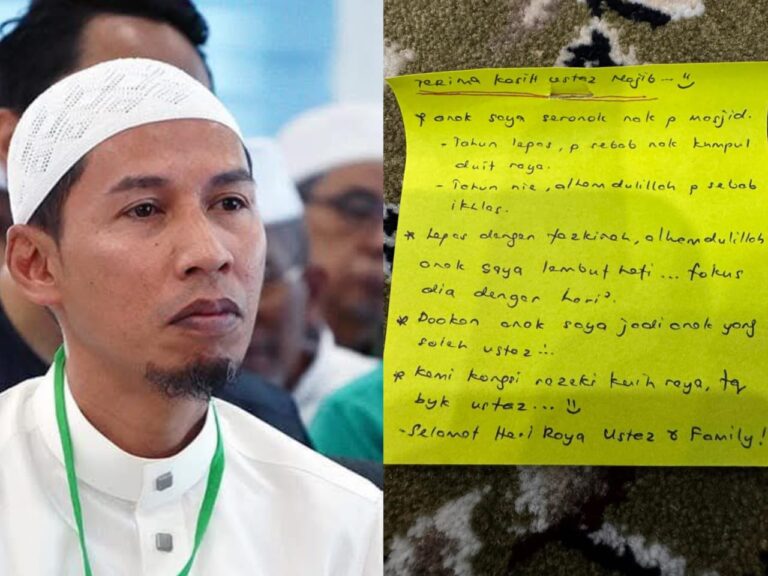 Terima kasih ustaz Najib... :)
* anak saya seronok nak p masjid.
- Tahun lepas, p sebab nak kumpul
duit raya.
- Tahun nie, alhamdulillah p sebab
ikhlas.
* Lepas dengar tazkirah, alhamdulillah
anak saya lembut hati... fokus
dia dengar hari².
* Doakan anak saya jadi anak yang
soleh ustaz...
* Kami kongsi rezeki kuih raya, tq
byk ustaz... :)
- Selamat Hari Raya Ustaz & Family!